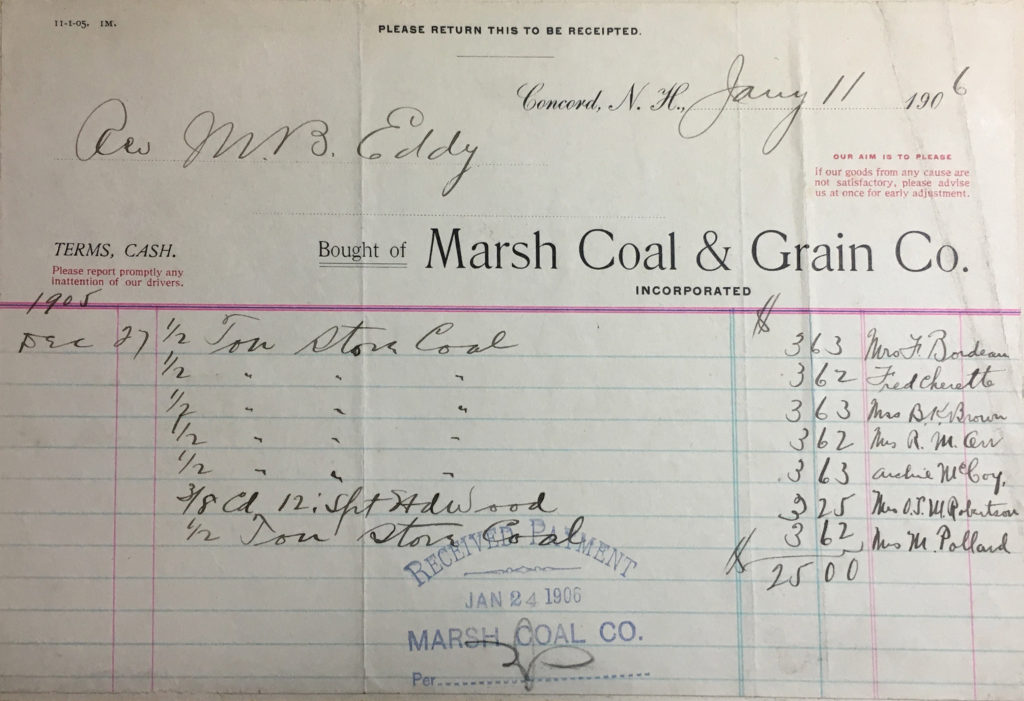 11-1-05. 1M.
PLEASE RETURN THIS TO BE RECEIPTED.
Concord, N. H., Jany 11 1906
Rev M. B. Eddy
OUR AIM IS TO PLEASE
If our goods from any cause are
not satisfactory, please advise
us at once for early adjustment.
TERMS, CASH.
Please report promptly any
inattention of our drivers.
Bought of Marsh Coal & Grain Co.
INCORPORATED
1905 $
Dec 27 1/2 Ton Stove Coal 3 63 Mrs F. Bordeau
1/2 " " " 3 62 Fred Cherette
1/2 " " " 3 63 Mrs B. K. Brown
1/2 " " " 3 62 Mrs R. M. Orr
1/2 " " " 3 63 Archie McCoy,
3/8 Cd. 12 Splt Hd Wood 3 25 Mrs O. S. M. Robertson
1/2 Ton Stove Coal 3 62 Mrs M. Pollard
$ 25 00
RECEIVED PAYMENT
JAN 24 1906
MARSH COAL CO.
Per